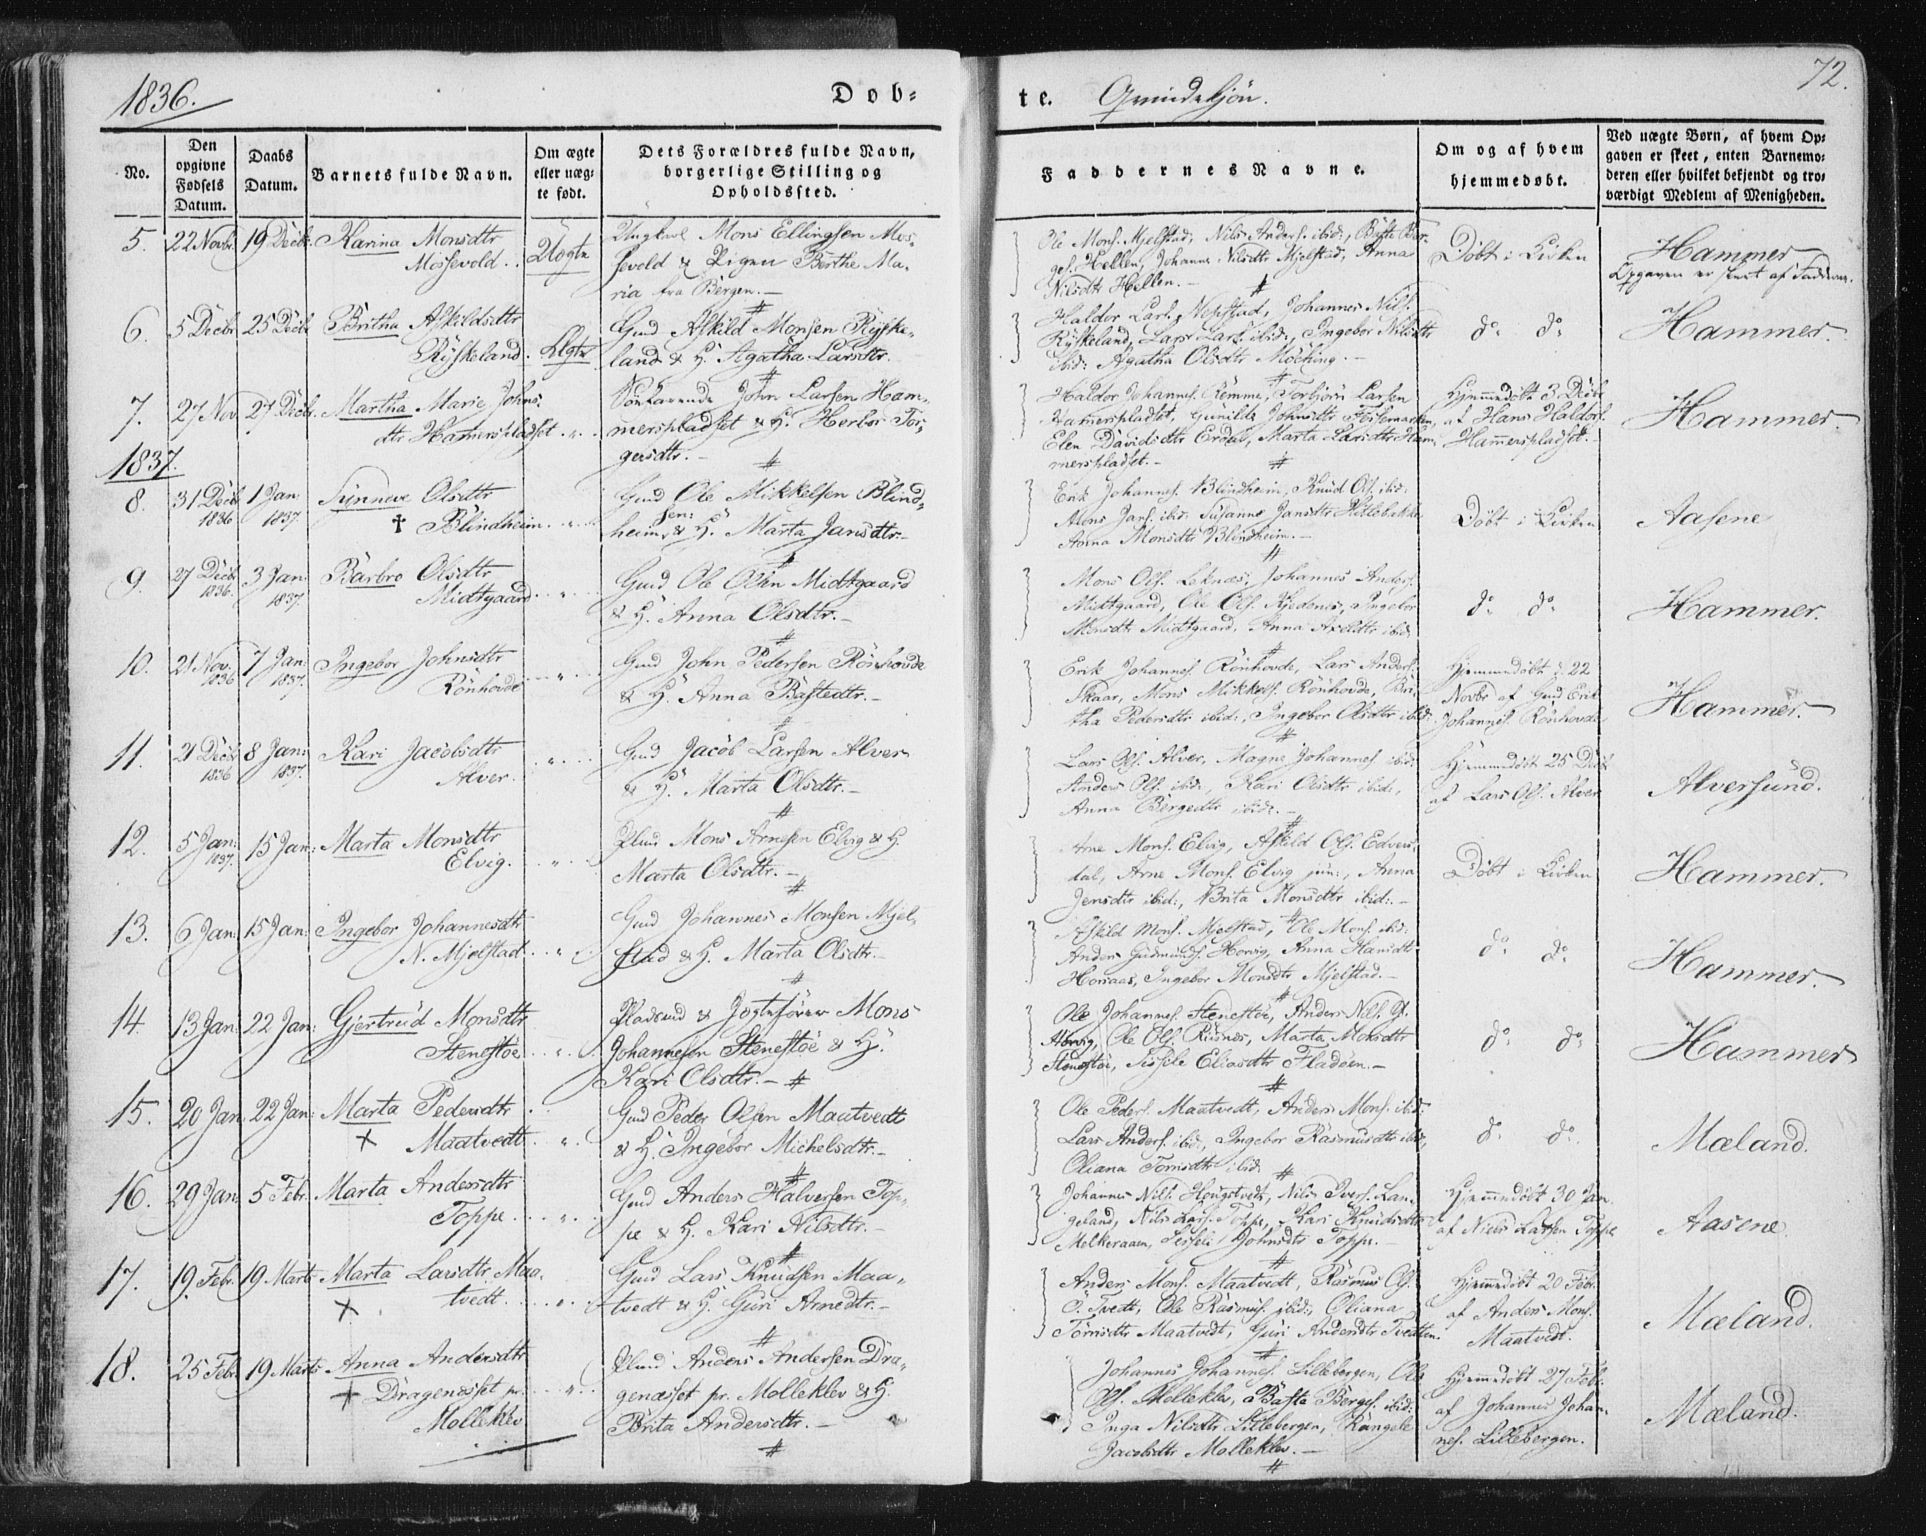 1836.
Dob-
te. Qvindekjøn.
72.
No.
Den opgivne Fødsels Datum.
Daabs Datum.
Barnets fulde Navn.
Om ægte eller uægte født.
Dets Forældres fulde Navn, borgerlige Stilling og Opholdssted.
Faddernes Navne.
Om og af hvem hjemmedøbt.
Ved uægte Børn, af hvem Opgaven er skeet, enten Barnemoderen eller hvilket bekjendt og troværdigt Medlem af Menigheden.
5. 22 Novbr 19 Decbr Karina Monsdtr Uægte Ungkarl Mons Ellingsen Mos-
Mosevold. sevold & Pigen Berthe Ma-
ria fra Bergen.
Ole Mons. Mjelstad, Nils Anders. ibid:, Brite Ber-
ges. Hellen, Johanne Nilsdtr Mjelstad, Anna
Nilsdtr Hellen.
Døbt i Kirken
Hammer
Opgaven er skeet af Fadderne.
6. 5 Decbr 25 Decbr Britha Askildsdtr Gmd Askild Monsen Ryske-
Ryskeland. Ægte land & H. Agatha Larsdtr.
Haldor Lars. Nepstad, Johannes Nils.
Ryskeland, Lars Lars. ibid:, Ingebor Nilsdtr
ibid: Agatha Olsdtr Mocking.
do do
Hammer.
7. 27 Nov 27 Decbr. Martha Marie Johns- John Larsen Ham-
dtr Hamerspladset merspladset & H. Tor-
gersdtr.
Haldor Johannes. Remme, Torbjørn Larsen
Hamerspladset, Gunilde Johnsdtr
Elen Davidsdtr Erdal, Marta Larsdtr Ham-
merspladset.
Hjemmedøbt 3 Decbr
af Hans Haldors.
Hamerspladset.
Hammer.
1837.
8. 31 Decbr 1836 1 Jan 1837. Synneve Olsdtr Gmd Ole Mikkelsen Blind-
† Blindheim heim, sen: & H. Marta Jansdtr.
Erik Johannes. Blindheim, Knud Ols. ibid:
Mons Jans. ibid: Susanne Jansdtr
Anna Monsdtr Blindheim.
Døbt i Kirken
Aasene
9. 27 Decbr 1836. 3 Jan 1837. Barbro Olsdtr Gmd Ole Olsen Midtgaard
Midtgaard & H. Anna Olsdtr.
Mons Ols. Leknæs, Johannes Anders.
Midtgaard, Ole Ols. Kjedenes, Ingebor
Monsdtr Midtgaard, Anna ibid.
do do
Hammer.
10. 21 Nov. 1836 7 Jan 1837. Ingebor Johnsdtr Gmd John Pedersen Rønhovde
Rønhovde & H. Anna Bastedtr.
Erik Johannes. Rønhovde, Lars Anders.
Skaar, Mons Mikkels. Rønhovde, Bri-
tha Pedersdtr ibid:, Ingebor Olsdtr ibid:
Hjemmedøbt d: 22
Novbr af Gmd Erik
Johannes. Rønhovde
Hammer.
11. 21 Decbr 1836 8 Jan: 1837. Kari Jacobsdtr Gmd Jacob Larsen Alver
Alver. & H. Marta Olsdtr.
Lars Ols. Alver, Magne Johannes. ibid:
Anders Ols. ibid:, Kari Olsdtr ibid:,
Anna Børgedtr ibid:.
Hjemmedøbt 25 Decbr
af Lars Ols. Alver
Alversund.
12. 5 Jan: 1837. 15 Jan: Marta Monsdtr Mons Arnesen Elvig & H.
Elvig. Marta Olsdtr.
Arne Mons. Elvig, Askild Ols. Edvers-
dal, Arne Mons. Elvig jun:, Anna
Jensdtr ibid:, Brita Monsdtr ibid:.
Døbt i Kirken
Hammer.
13. 6 Jan: 15 Jan: Ingebor Johannesdtr Gmd Johannes Monsen Mjel-
N. Mjelstad. stad & H. Marta Olsdtr.
Askild Mons. Mjelstad, Ole Mons. ibid:
Anders Gudmunds. Horvig, Anna Hansdtr
Horsaas, Ingebor Monsdtr Mjelstad.
do do
Hammer.
14. 13 Jan: 22 Jan: Gjertrud Monsdtr Pladsmd & Jogtefører Mons
Stenestøe Johannesen Stenestøe & H.
Kari Olsdtr.
Ole Johannes. Stenestøe, Anders Nils.
Horvig, Ole Ols. Risnes, Marta Monsdtr
Stenestøe, Sissele Eliasdtr Fladøen.
do do
Hammer
15. 20 Jan 22 Jan: Marta Pedersdtr Gmd Peder Olsen Maatvedt
x Maatvedt & H. Ingebor Michelsdtr.
Ole Peders. Maatvedt, Anders Mons. ibid:
Lars Anders. ibid:, Ingebor Rasmusdtr ibid:,
Oliana Tomsdtr ibid:
do do
Mæland.
16. 29 Jan: 5 Febr. Marta Andersdtr Gmd Anders Halversen Top-
Toppe. pe & H. Kari Nilsdtr.
Johannes Nils. Hougstvedt, Nils Ivers. Lan-
geland, Nils Lars. Toppe, Kari Knudsdtr
Melkeraaen, Sissele Johnsdtr Toppe.
Hjemmedøbt 30 Jan
af Niels Larsen Toppe
Aasene
17. 19. Febr. 19 Marts Marta Larsdtr Maa- Gmd Lars Knudsen Maa-
x tvedt. tvedt & H. Guri Arnedtr.
Anders Mons. Maatvedt, Rasmus Ols.
Ø. Tvedt, Ole Rasmus. ibid:, Oliana
Tomsdtr Maatvedt, Guri Andersdtr Tvedten.
Hjemmedøbt 20 Febr.
af Anders Mons.
Maatvedt.
Mæland.
18. 25 Febr. 19 Marts Anna Andersdtr Anders Andersen Dra-
x Dragenæsset pr. genæsset pr. Molleklev & H.
Molleklev Brita Andersdtr.
Johannes Johannes. Lillebergen, Ole
Ols. Molleklev, Baste Børges. ibid:
Inga Nilsdtr Lillebergen, Rangele
Jacobsdtr Molleklev.
Hjemmedøbt 27 Febr.
af Johannes Johan-
nes. Lillebergen.
Mæland.